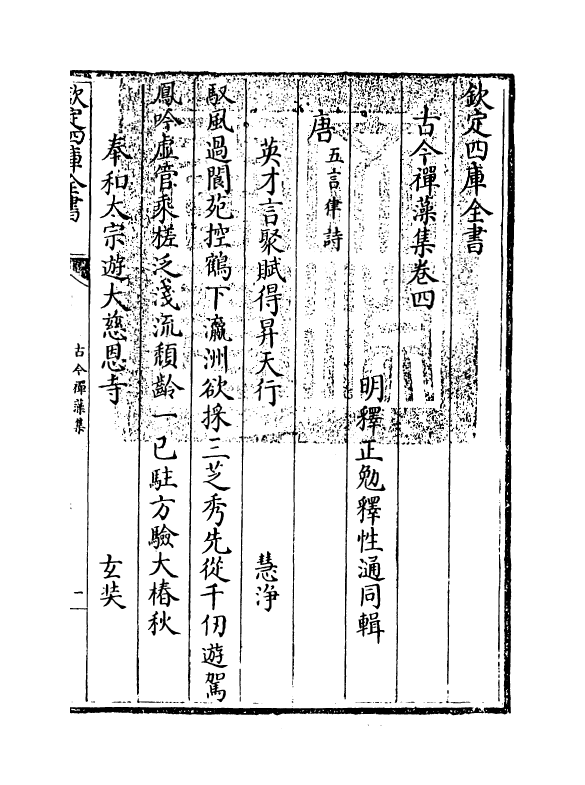 欽定四庫全書
古今禪藻集卷四
明釋正勉釋性通同輯
唐五言律詩
英才言聚賦得昇天行 慧淨
馭風過閬苑控鶴下瀛洲欲採三芝秀先從千仞遊駕
鳳吟虛管乘槎泛淺流頹齡一已駐方驗大椿秋
奉和太宗遊大慈恩寺 玄奘
欽定四庫全書
古今禪藻集
一